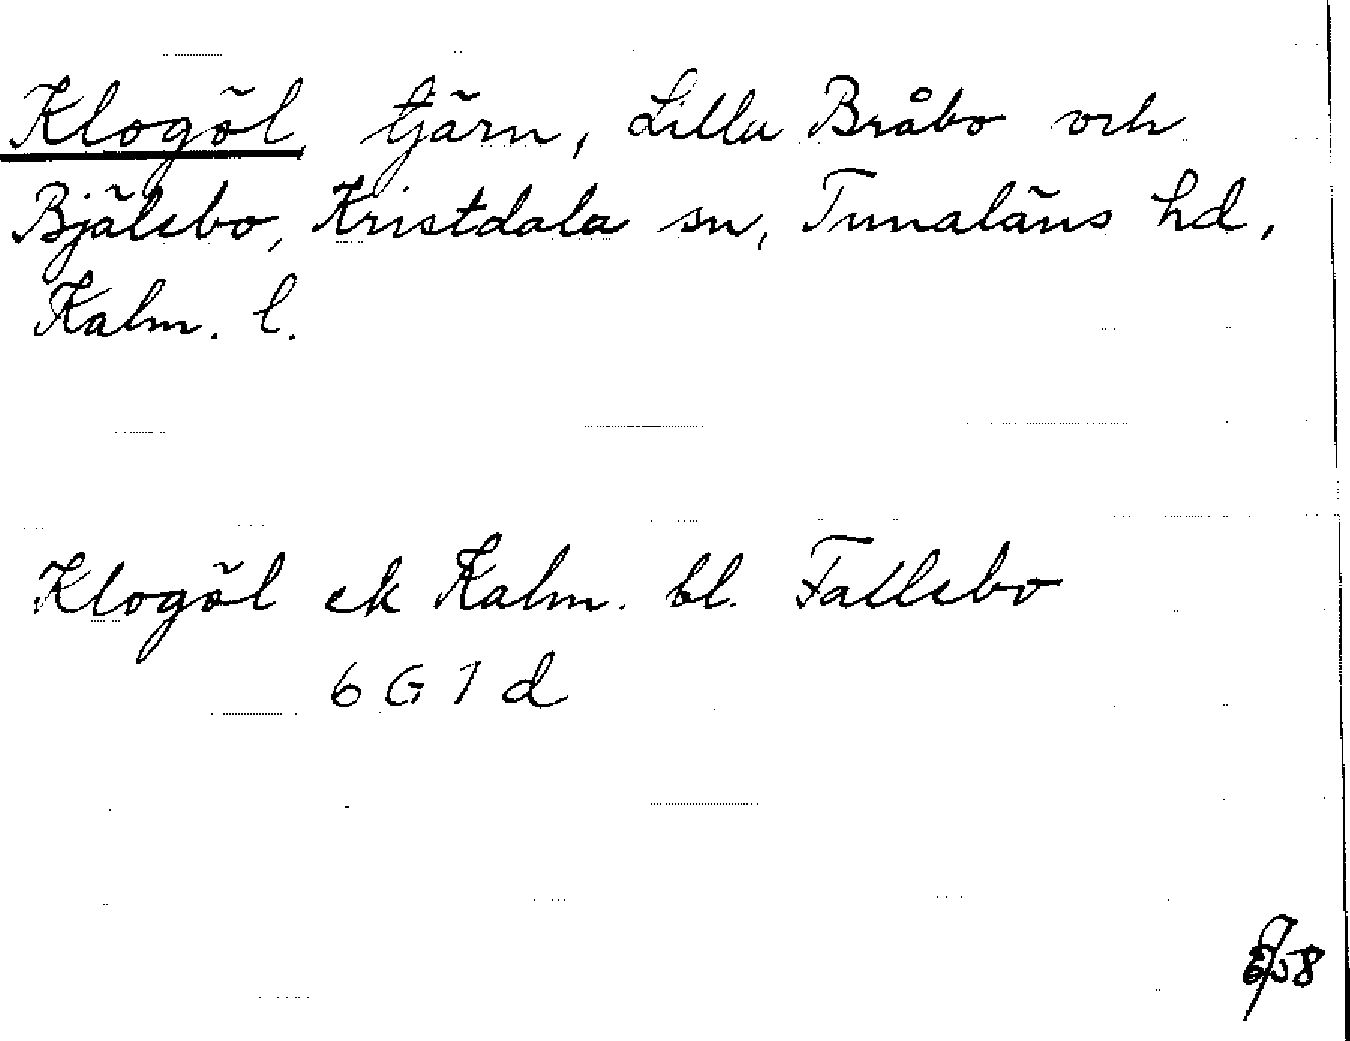 Klogöl tjärn, Lilla Bråbo och
Bjälebo, Kristdala sn, Tunaläns hd,
Kalm. l.
Klogöl ek Kalm. bl. Fallebo
6 G 1 d